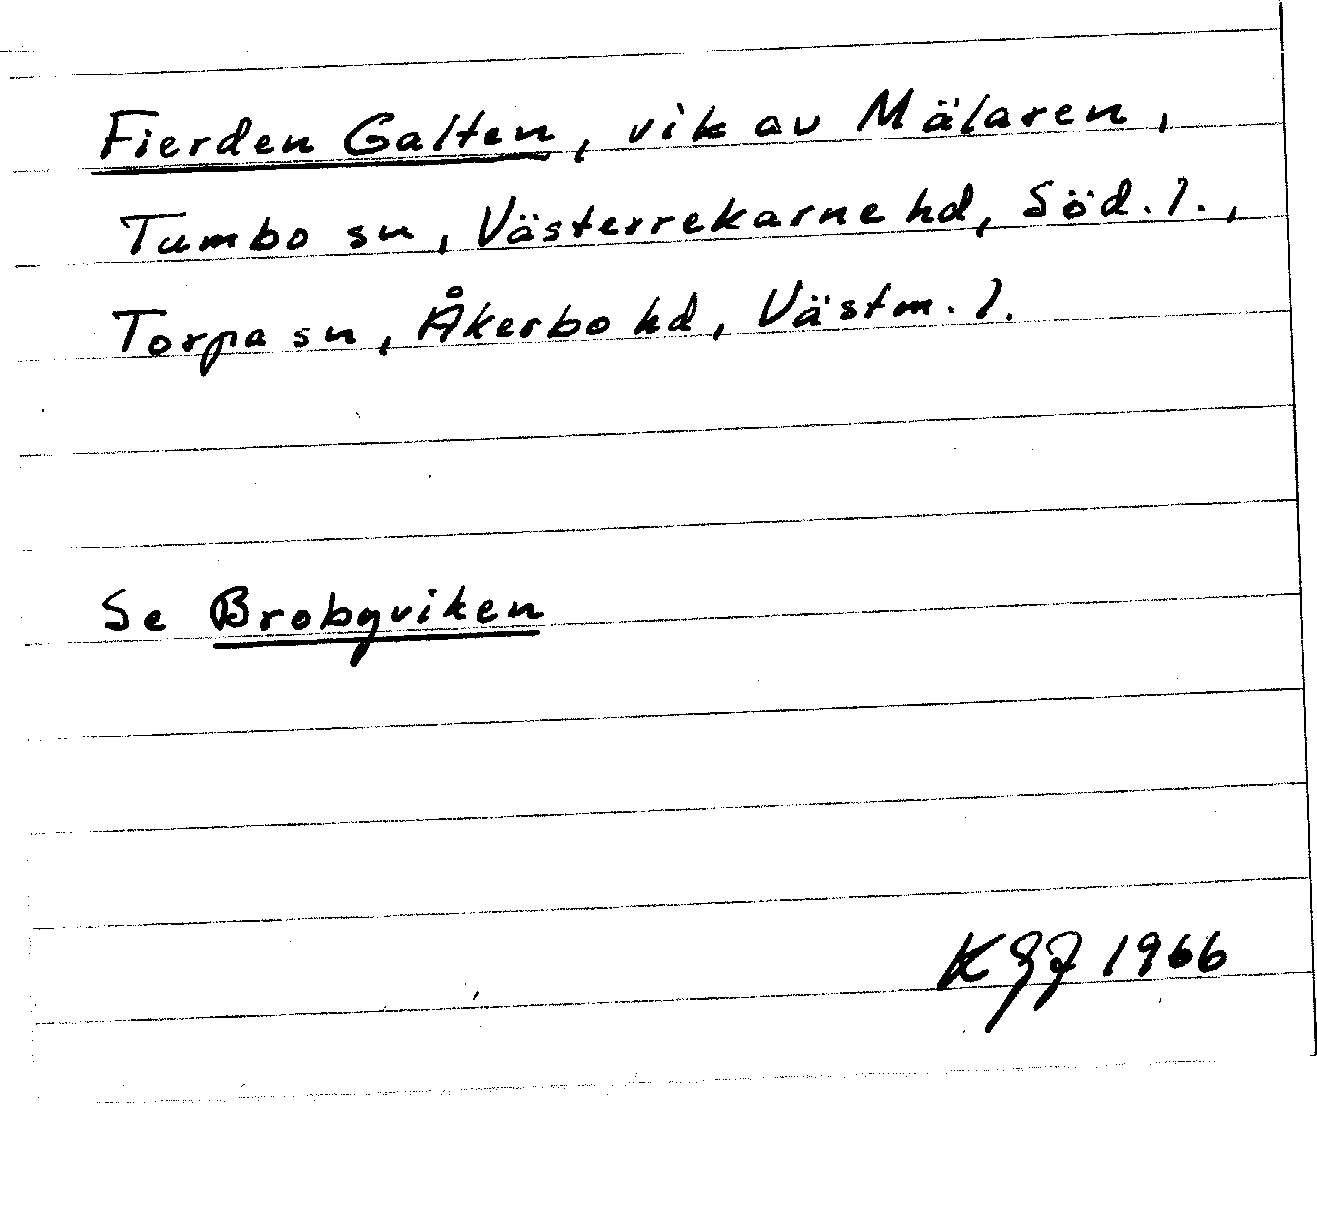 Fierden Galten, vik av Mälaren,
Tumbo sn, Västerrekarne hd, Söd. l.,
Torpa sn, Åkerbo hd, Västm. l.
Se Brobyviken
KGJ 1966